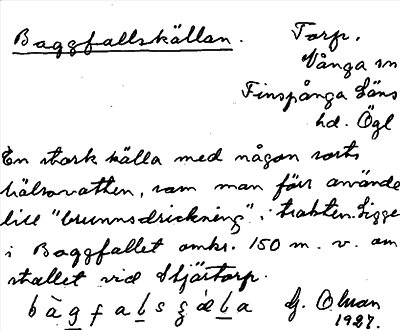 Baggfallskällan. Torp.
Vånga sn
Finspånga läns
hd. Ögl
En stark källa med någon sorts
hälsovatten, som man förr använde
till "brunnsdrickning" i trakten. Ligger
i Baggfallet omkr. 150 m. v. om
stället vid Stjärtorp.
G. Olson
1927.